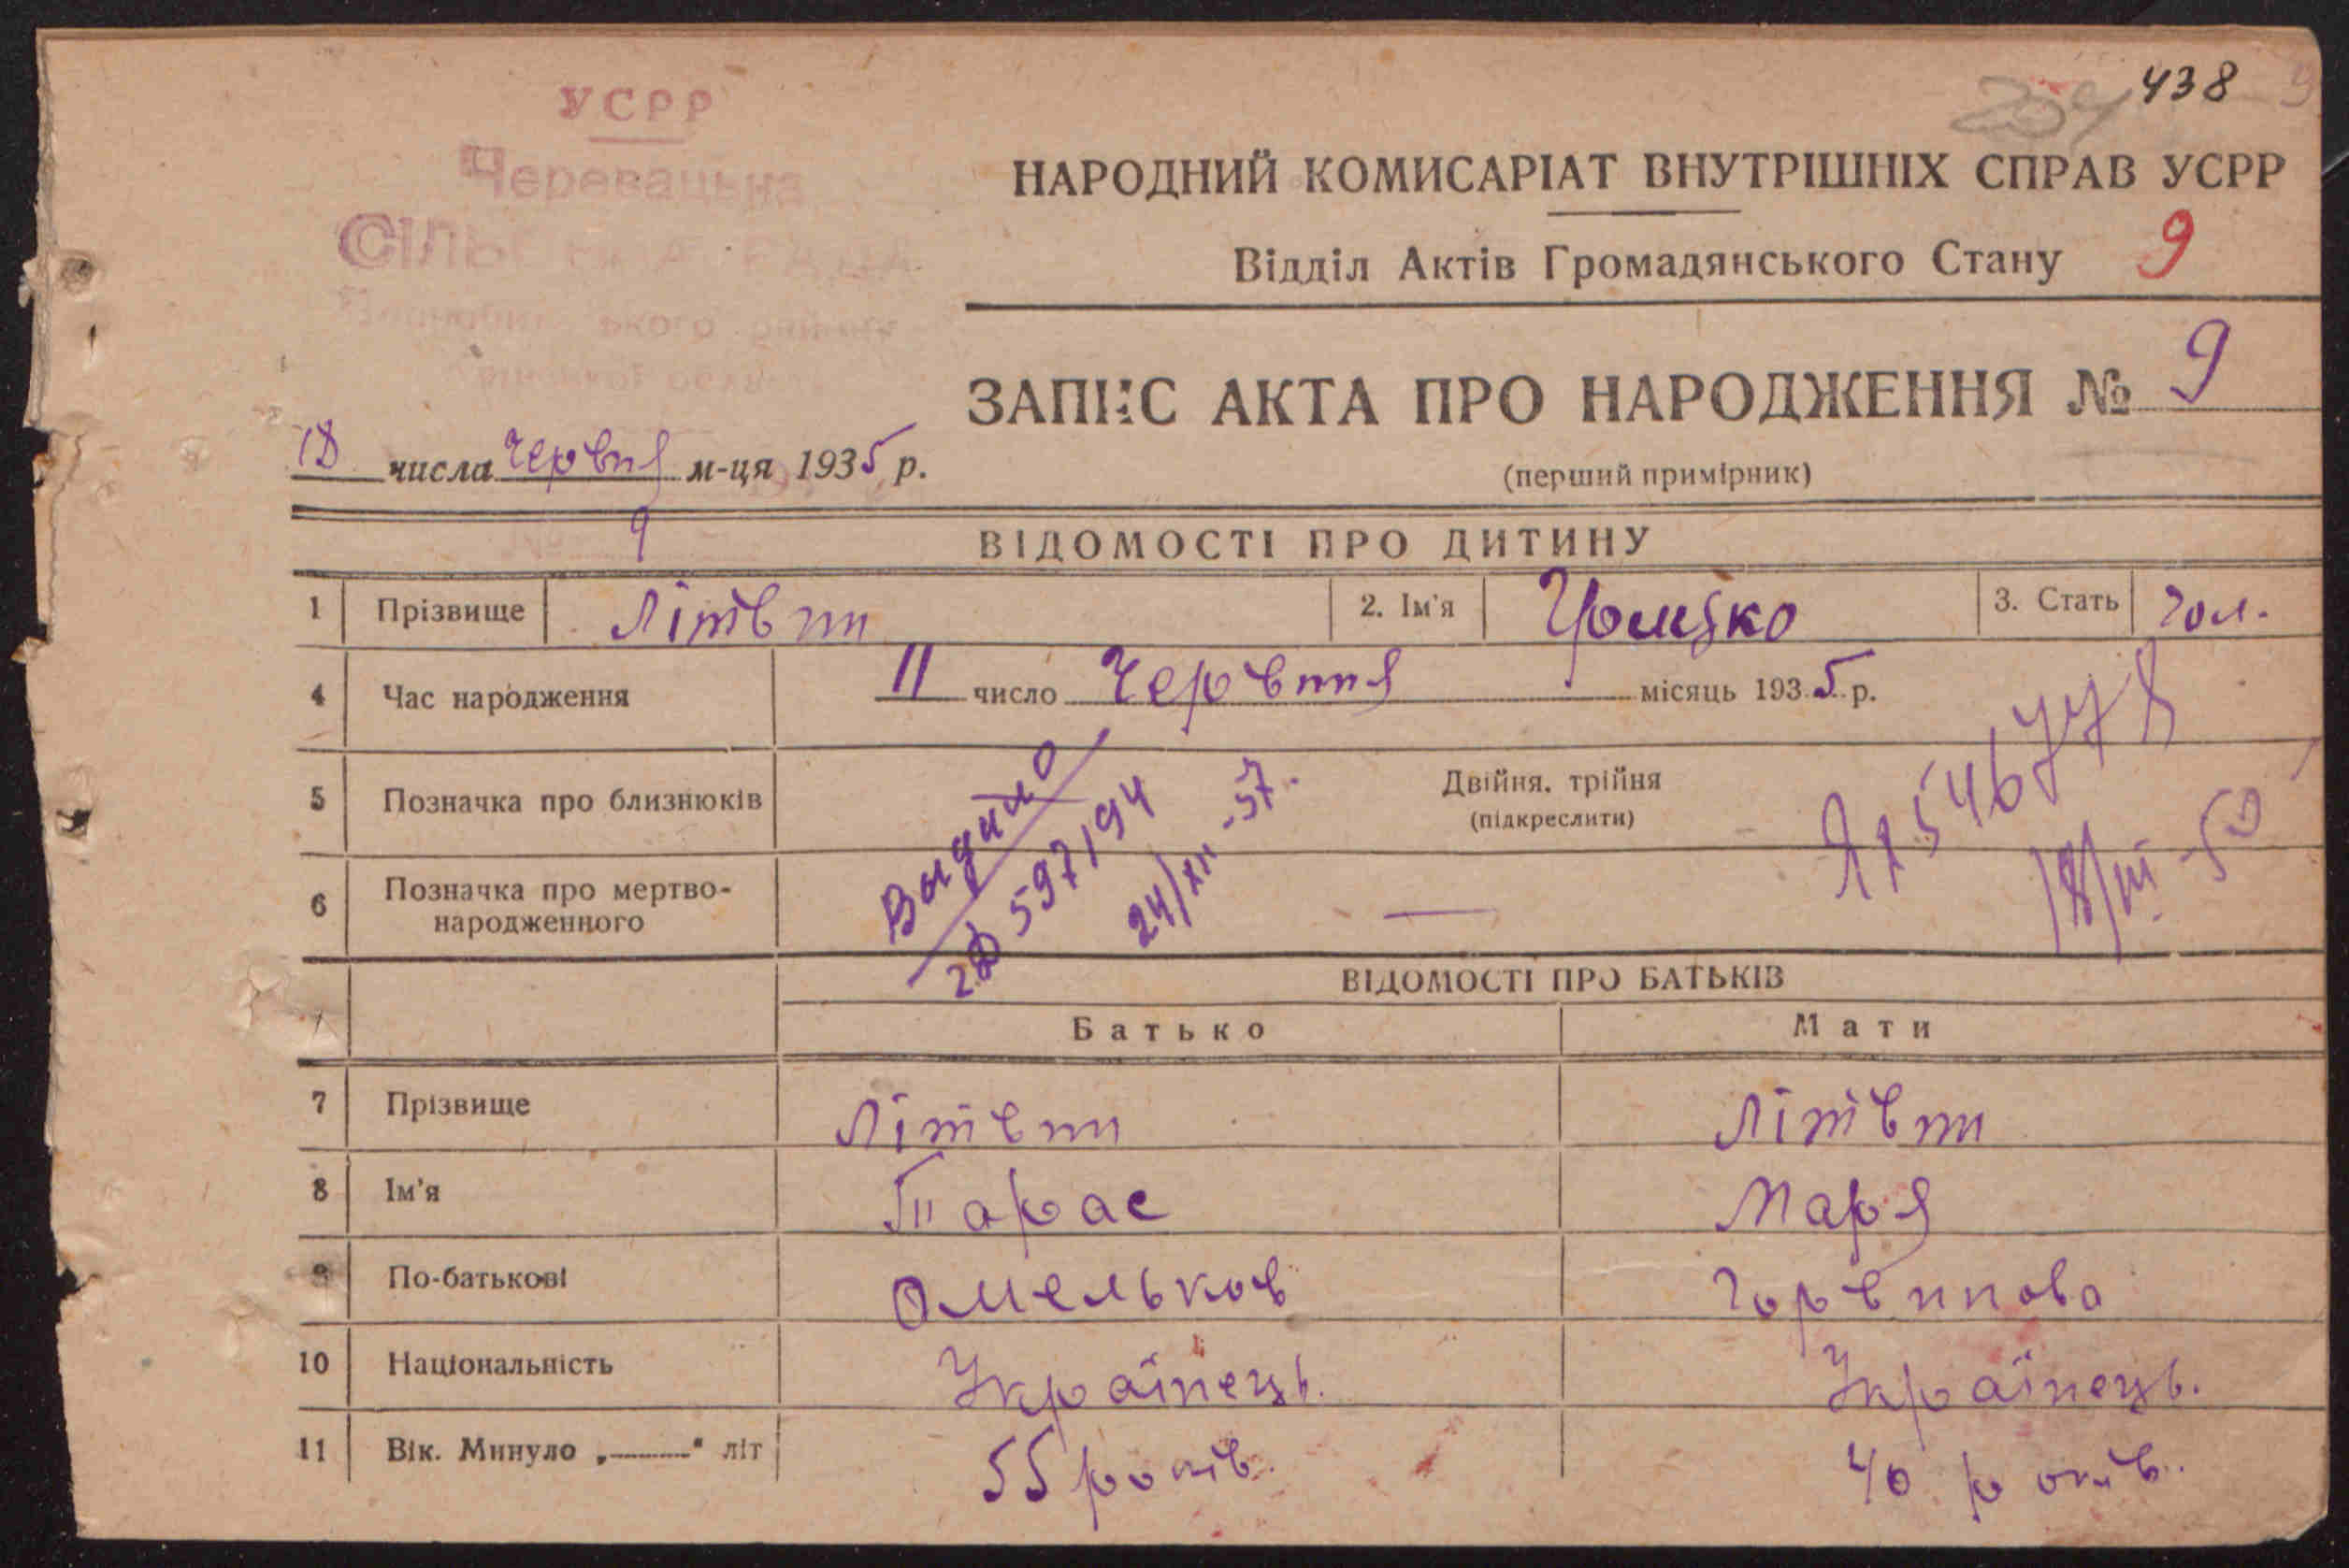 438
УСРР
Черевацька
СІЛЬСЬКА РАДА
НАРОДНИЙ КОМИСАРІАТ ВНУТРІШНІХ СПРАВ УСРР
Відділ Актів Громадянського Стану 9
ЗАПИС АКТА ПРО НАРОДЖЕННЯ № 9
18 числа Червня м-ця 1935 р.
(перший примірник)
9
ВІДОМОСТІ ПРО ДИТИНУ
1 Прізвище Літвин 2. Ім'я 3. Стать чол.
4 Час народження 11 число Червння місяць 1935 р.
5 Позначка про близнюків Двійня, трійня
(підкреслити)
6 Позначка про мертво-
народженного —
Выдано
597194
24/XII-57.
18/III-50
ВІДОМОСТІ ПРО БАТЬКІВ
Батько Мати
7 Прізвище Літвин Літвин
8 Ім'я Тарас Маря
9 По-батькові Омельков
10 Національність Українець. Українець.
11 Вік. Минуло „———" літ 55 років. 40 років.